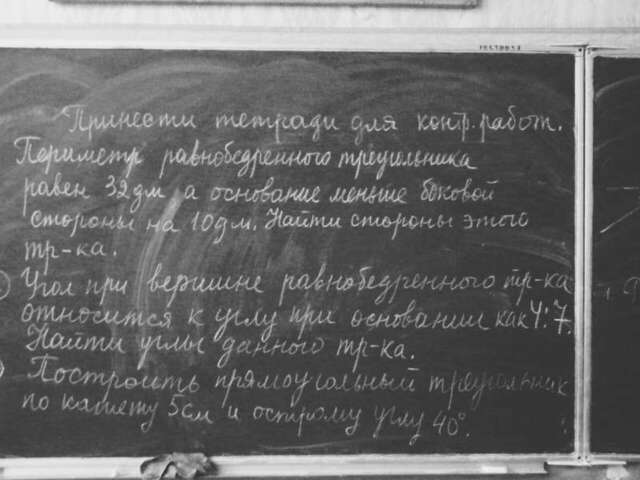 Принести тетради для контр. работ.
Периметр равнобедренного треугольника
равен 32дм а основание меньше боковой
стороны на 10дм. Найти стороны этого
тр-ка.
) Угол при вершине равнобедренного тр-ка
относится к углу при основании как 4:7.
Найти углы данного тр-ка.
) Построить прямоугольный треугольник
по катету 5см и острому углу 40°.